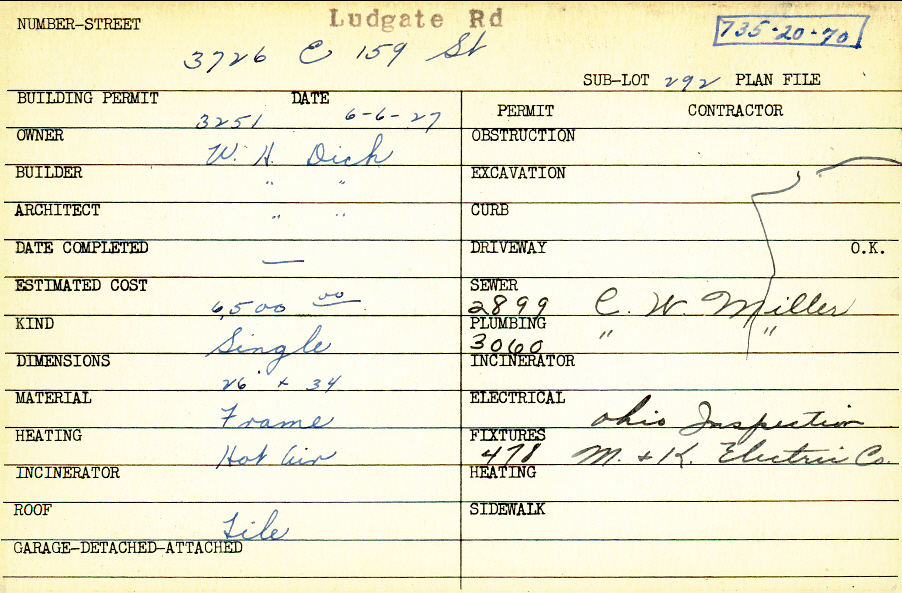 Ludgate Rd
NUMBER-STREET
735-20-70
3726 E 159 St
SUB-LOT 292 PLAN FILE
BUILDING PERMIT DATE
3251 6-6-27
OWNER
W. H. Dich
BUILDER
" "
ARCHITECT
" "
DATE COMPLETED
—
ESTIMATED COST
6,500 00
KIND
Single
DIMENSIONS
26 + 34
MATERIAL
Frame
HEATING
Hot Air
INCINERATOR
ROOF
Tile
GARAGE-DETACHED-ATTACHED
PERMIT CONTRACTOR
OBSTRUCTION
EXCAVATION
CURB
DRIVEWAY O.K.
SEWER
2899 C. W. Miller
PLUMBING
3060 " "
INCINERATOR
ELECTRICAL
Ohio Inspection
FIXTURES
478 M. & K. Electric Co.
HEATING
SIDEWALK